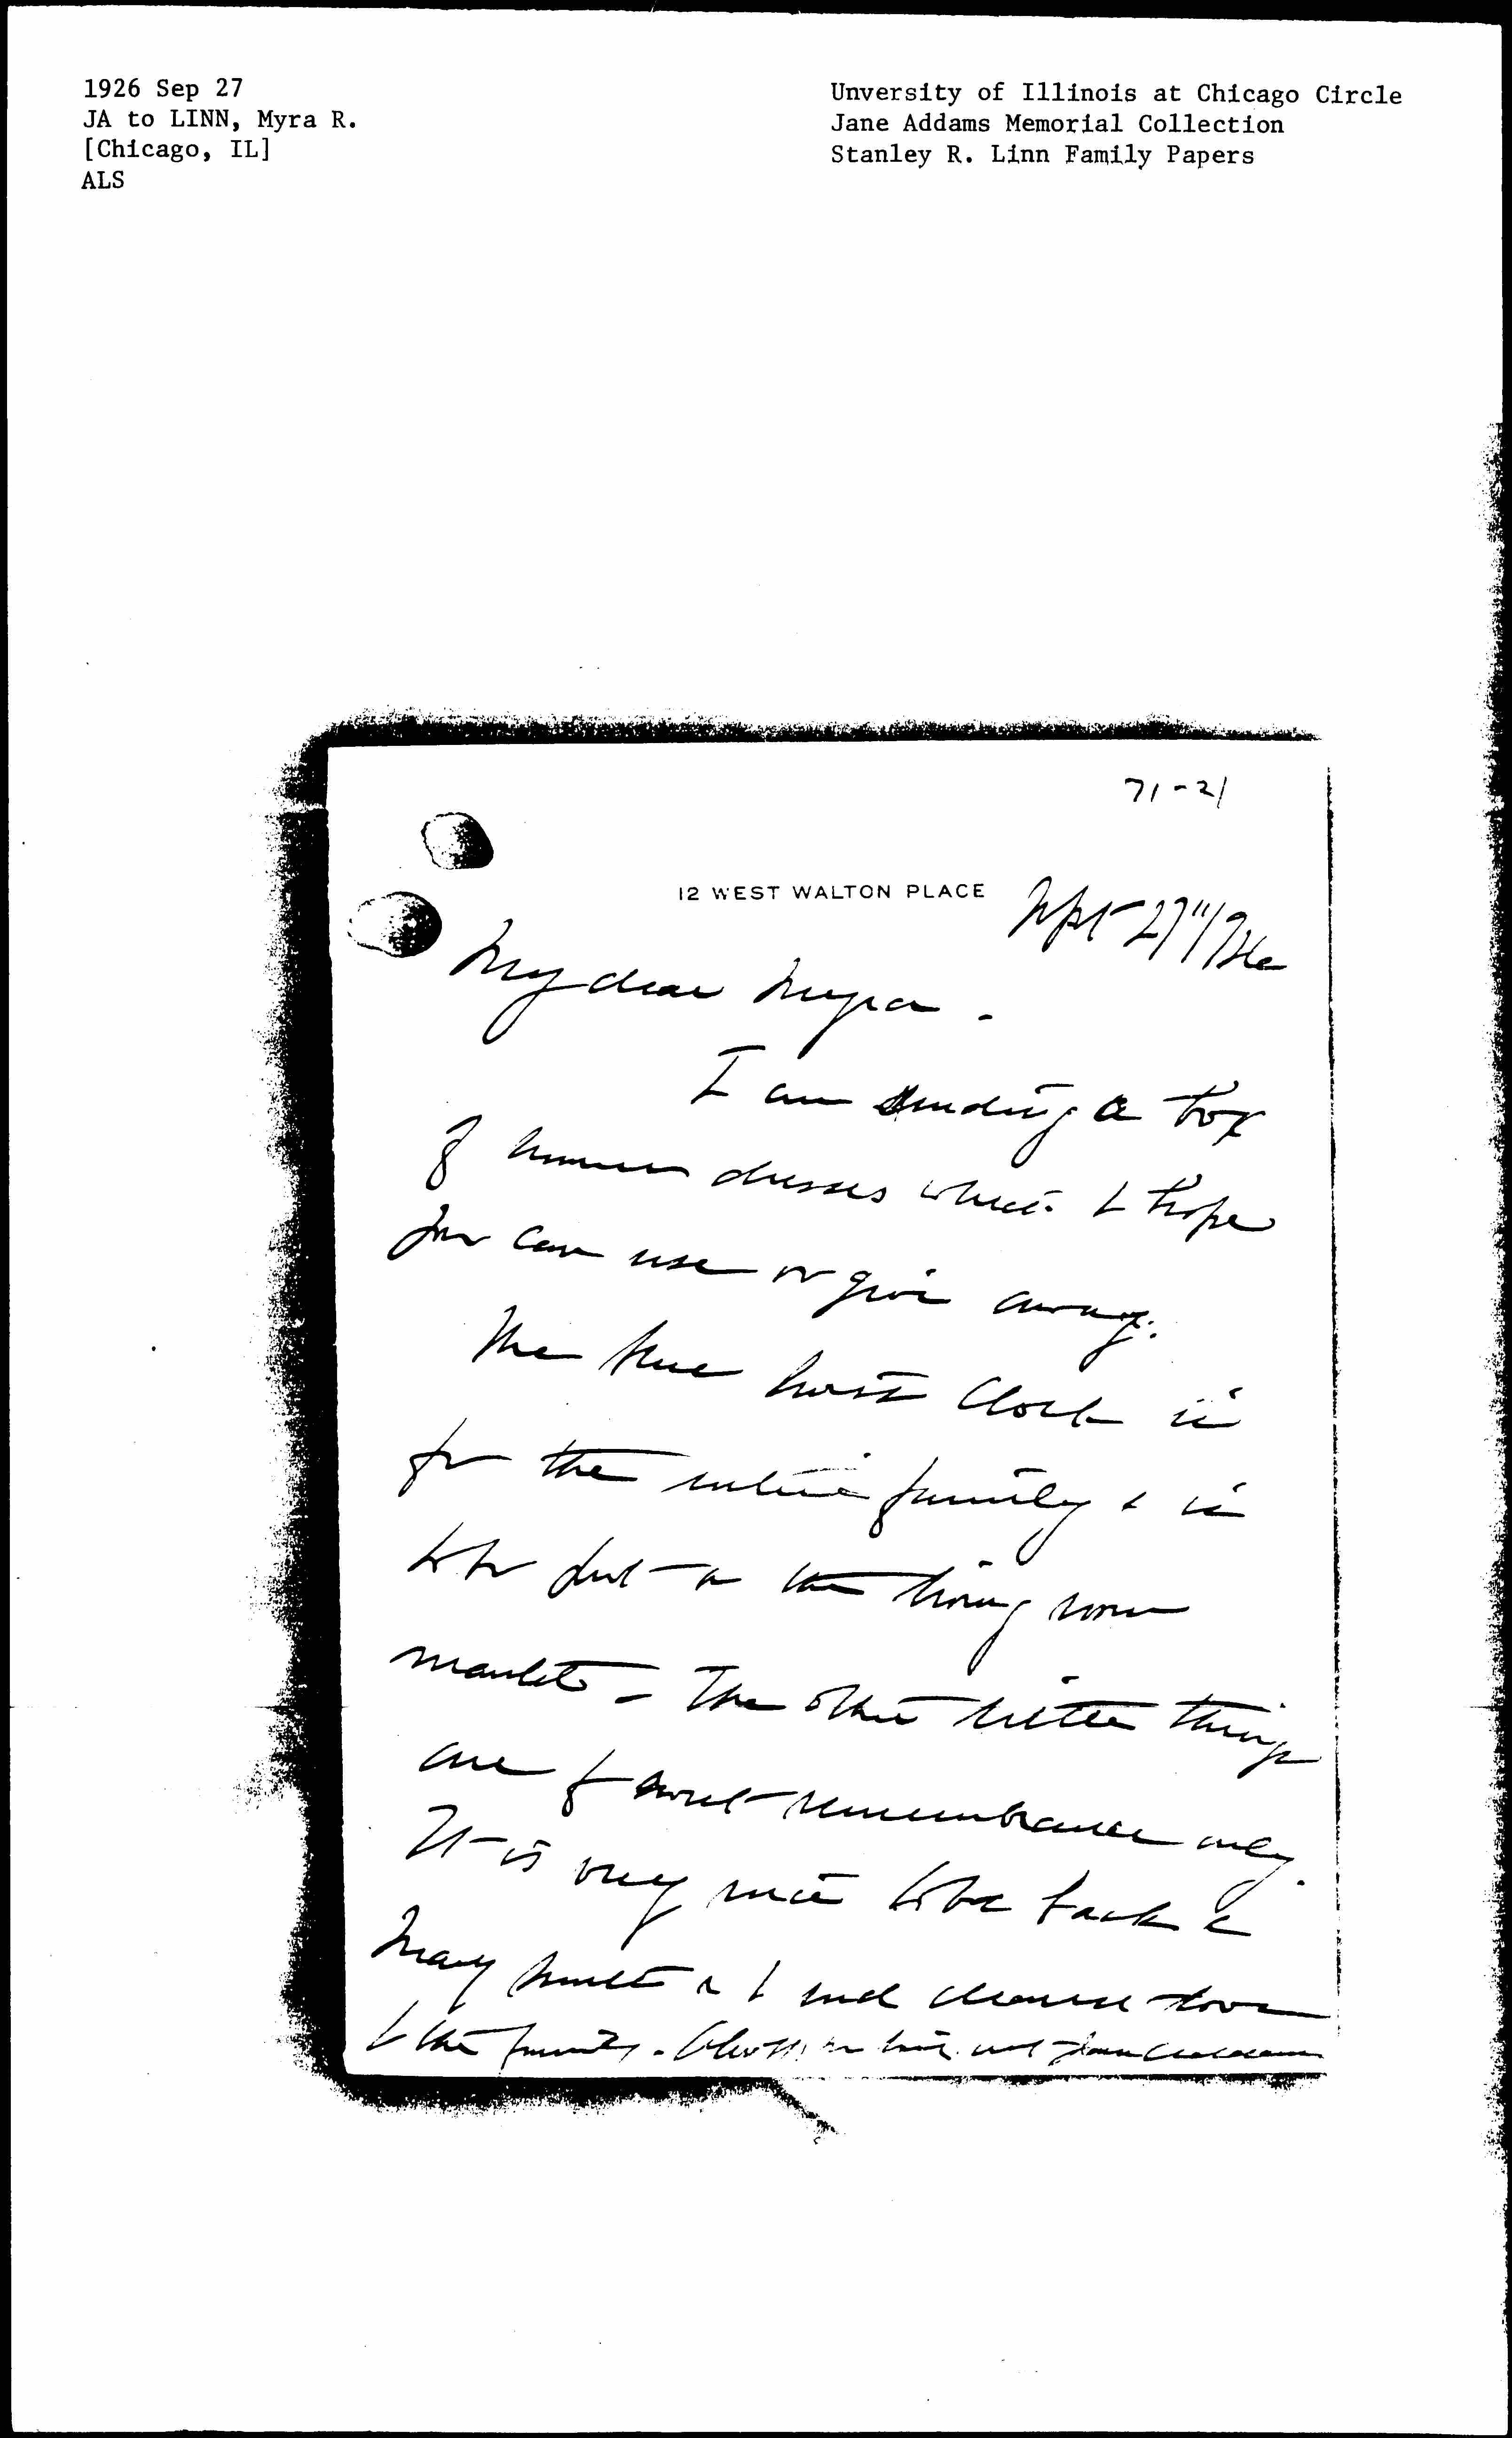 1926 Sep 27
JA to LINN, Myra R.
[Chicago, IL]
ALS
Unversity of Illinois at Chicago Circle
Jane Addams Memorial Collection
Stanley R. Linn Family Papers
71-21
12 WEST WALTON PLACE
Sept 27"/26
My dear Myra.
I am sending a box
of summer dresses which I hope
you can use or give away.
The blue Swiss Clock is
for the entire family & is
to be put on the living room
mantle - The other little things
are of sweet remembrance only.
It is very nice to be back &
Mary Smith & I send dearest love
to the family.